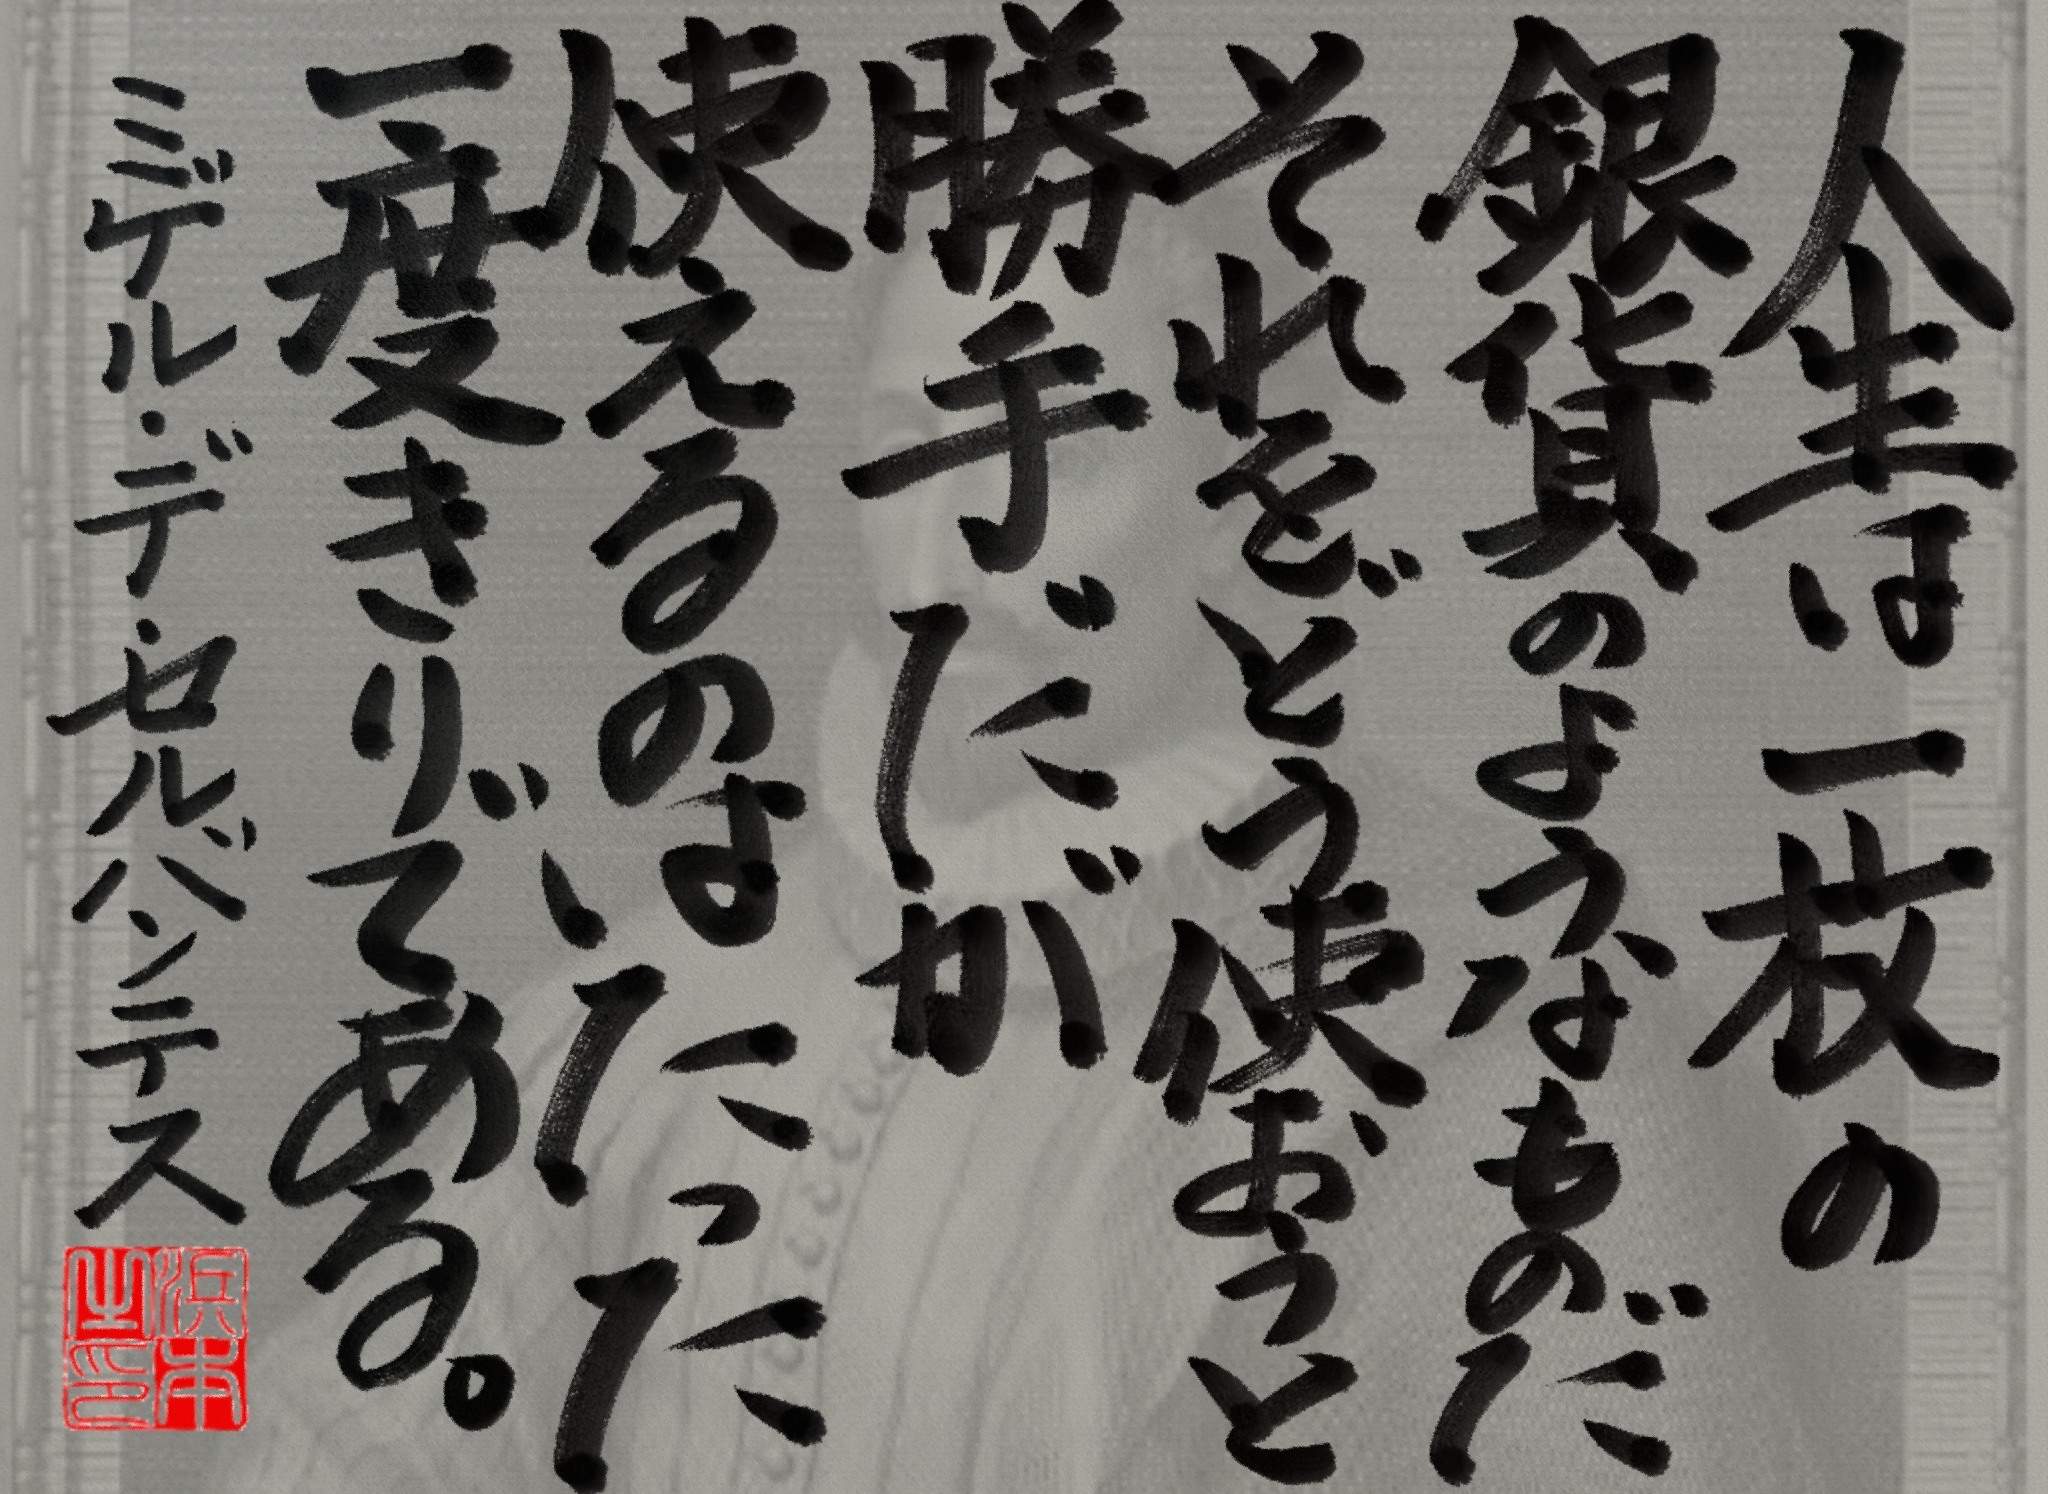 人生は一枚の
銀貨のようなものだ
それをどう使おうと
勝手だが
使えるのは
いたった
一度きりである。
ミゲル・デ・セルバンテス
浜本
之印